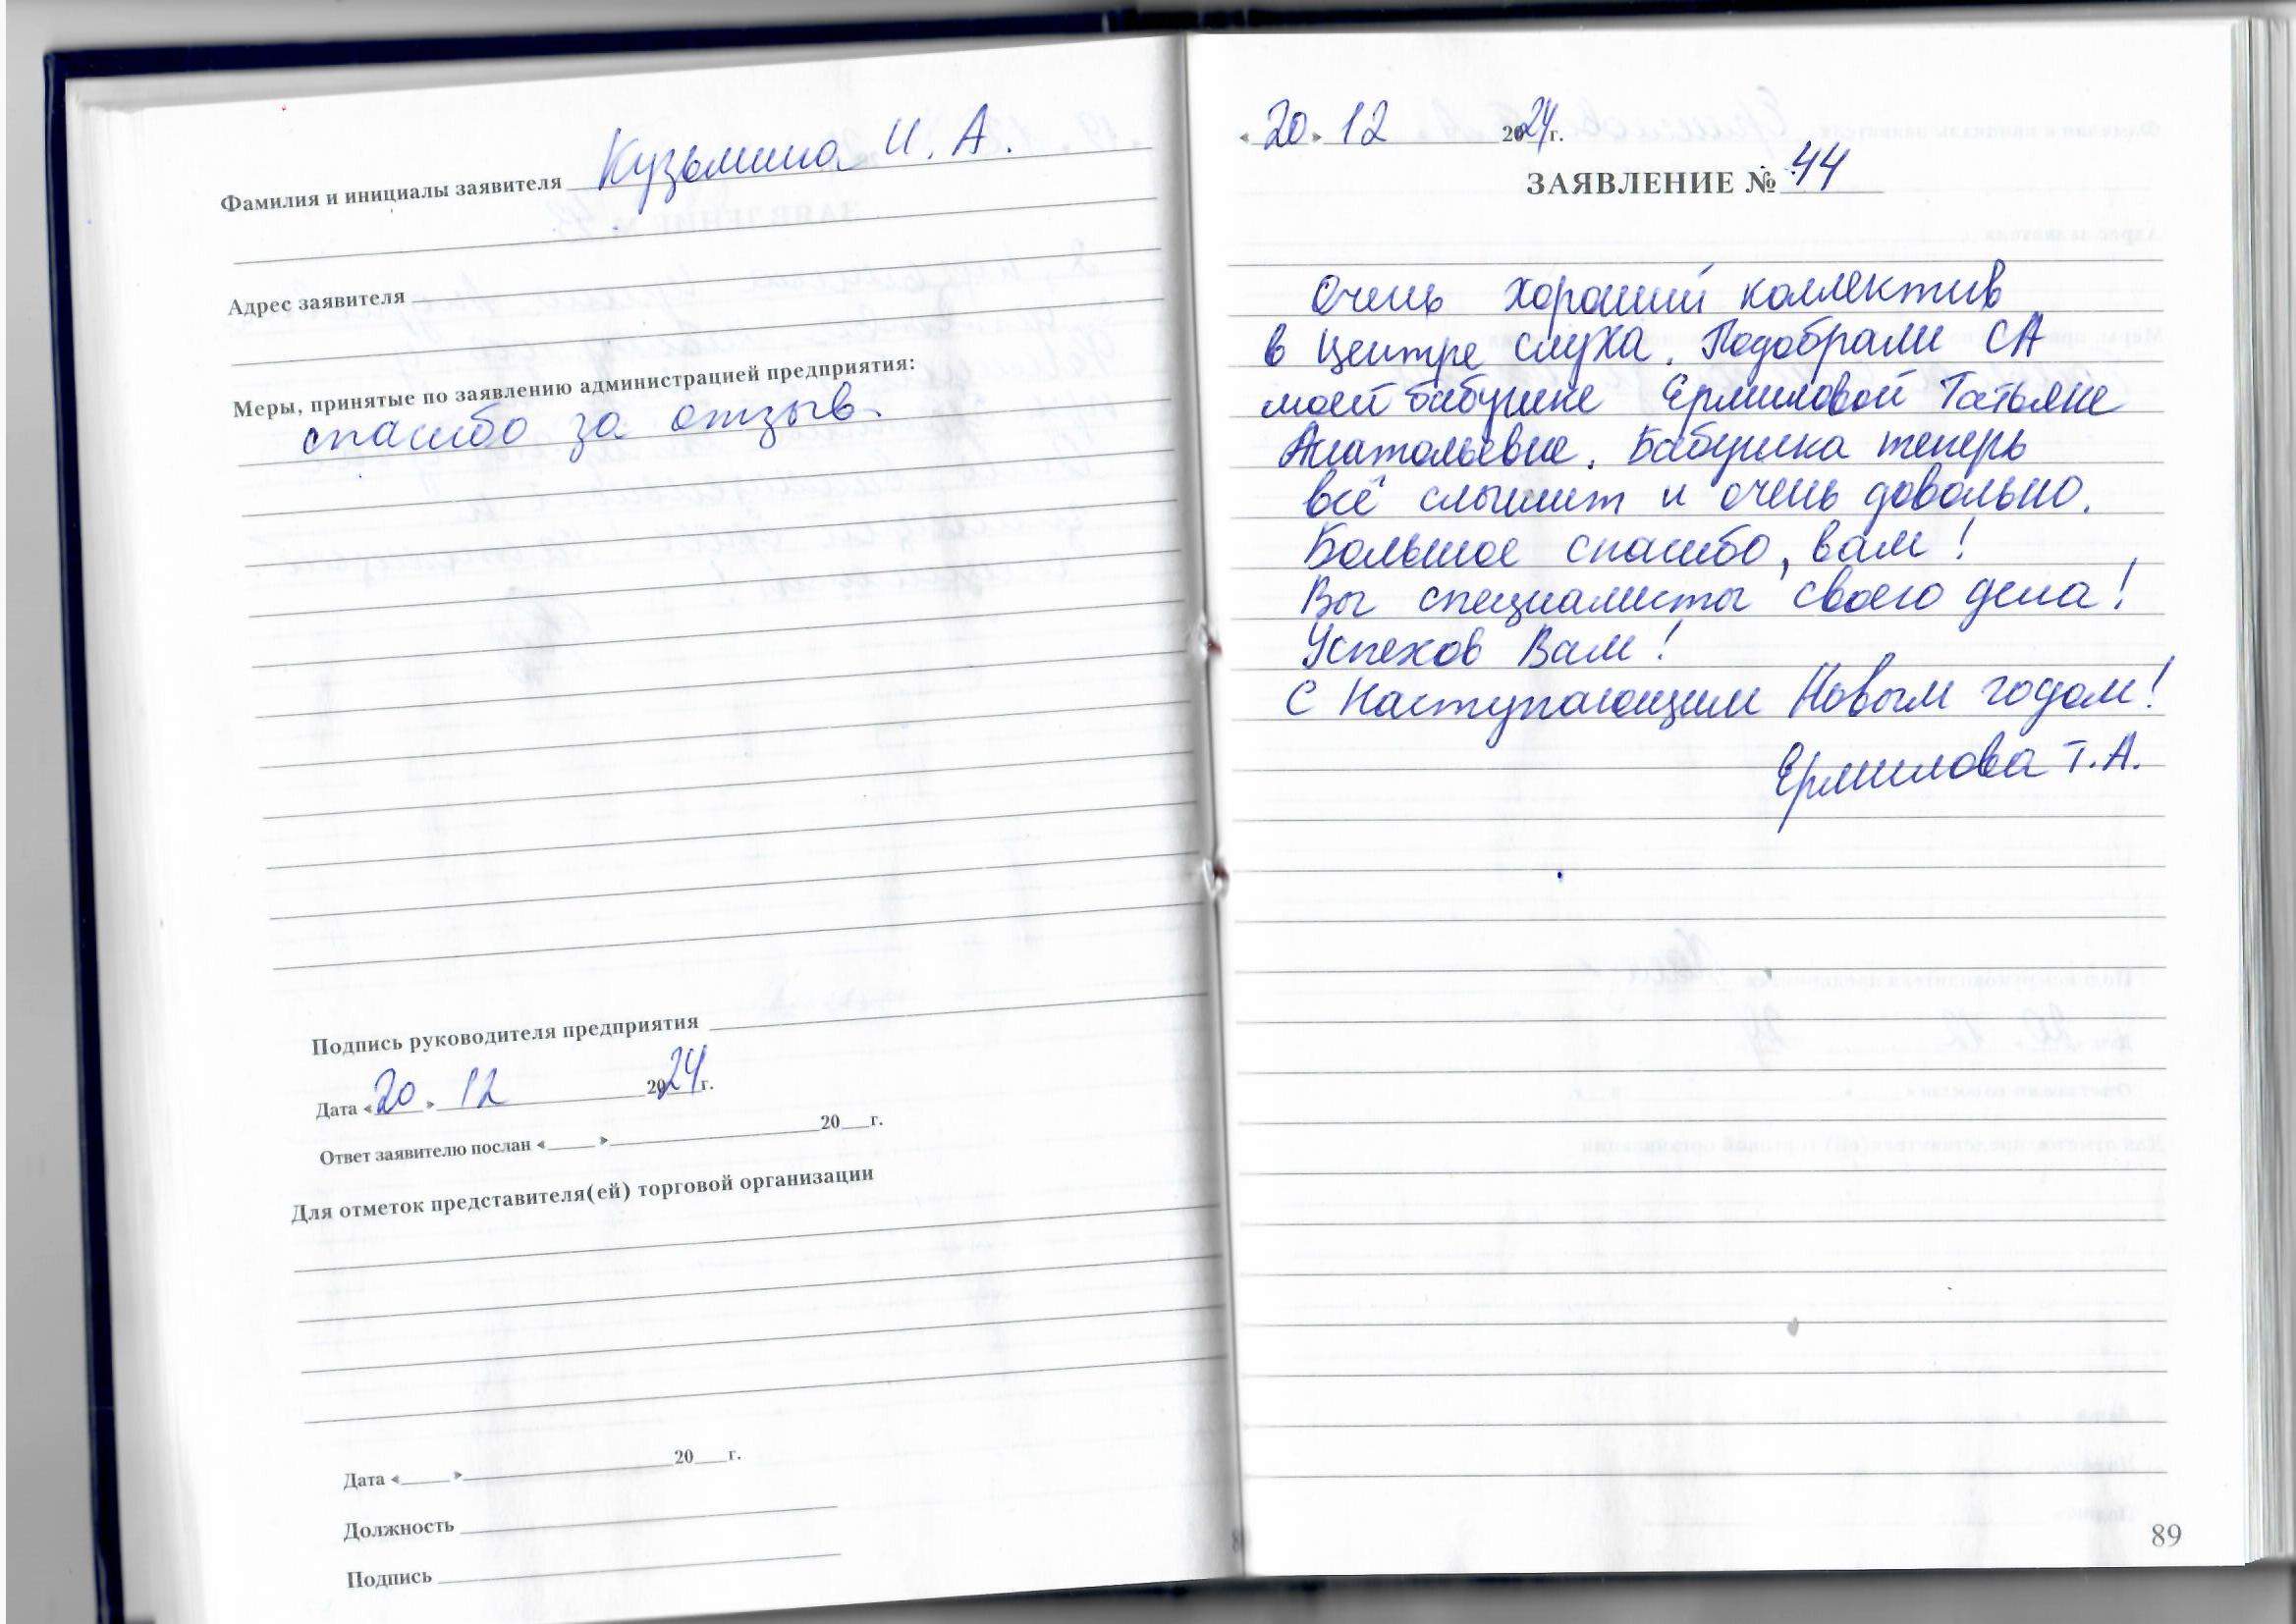 Фамилия и инициалы заявителя Кузьмина И. А.
Адрес заявителя
Меры, принятые по заявлению администрацией предприятия:
спасибо за отзыв.
Подпись руководителя предприятия
Дата «20.» 12 2024г.
Ответ заявителю послан «____»____ 20__г.
Для отметок представителя(ей) торговой организации
Дата «____»____ 20__г.
Должность
Подпись
«20» 12 2024г.
ЗАЯВЛЕНИЕ № 44
Очень хороший коллектив
в Центре слуха. Подобрали СА
моей бабушке Ермиловой Татьяне
Анатольевне. Бабушка теперь
всё слышит и очень довольно.
Большое спасибо, вам!
Вы специалисты своего дела!
Успехов Вам!
С Наступающим Новым годом!
Ермилова Т.А.
89